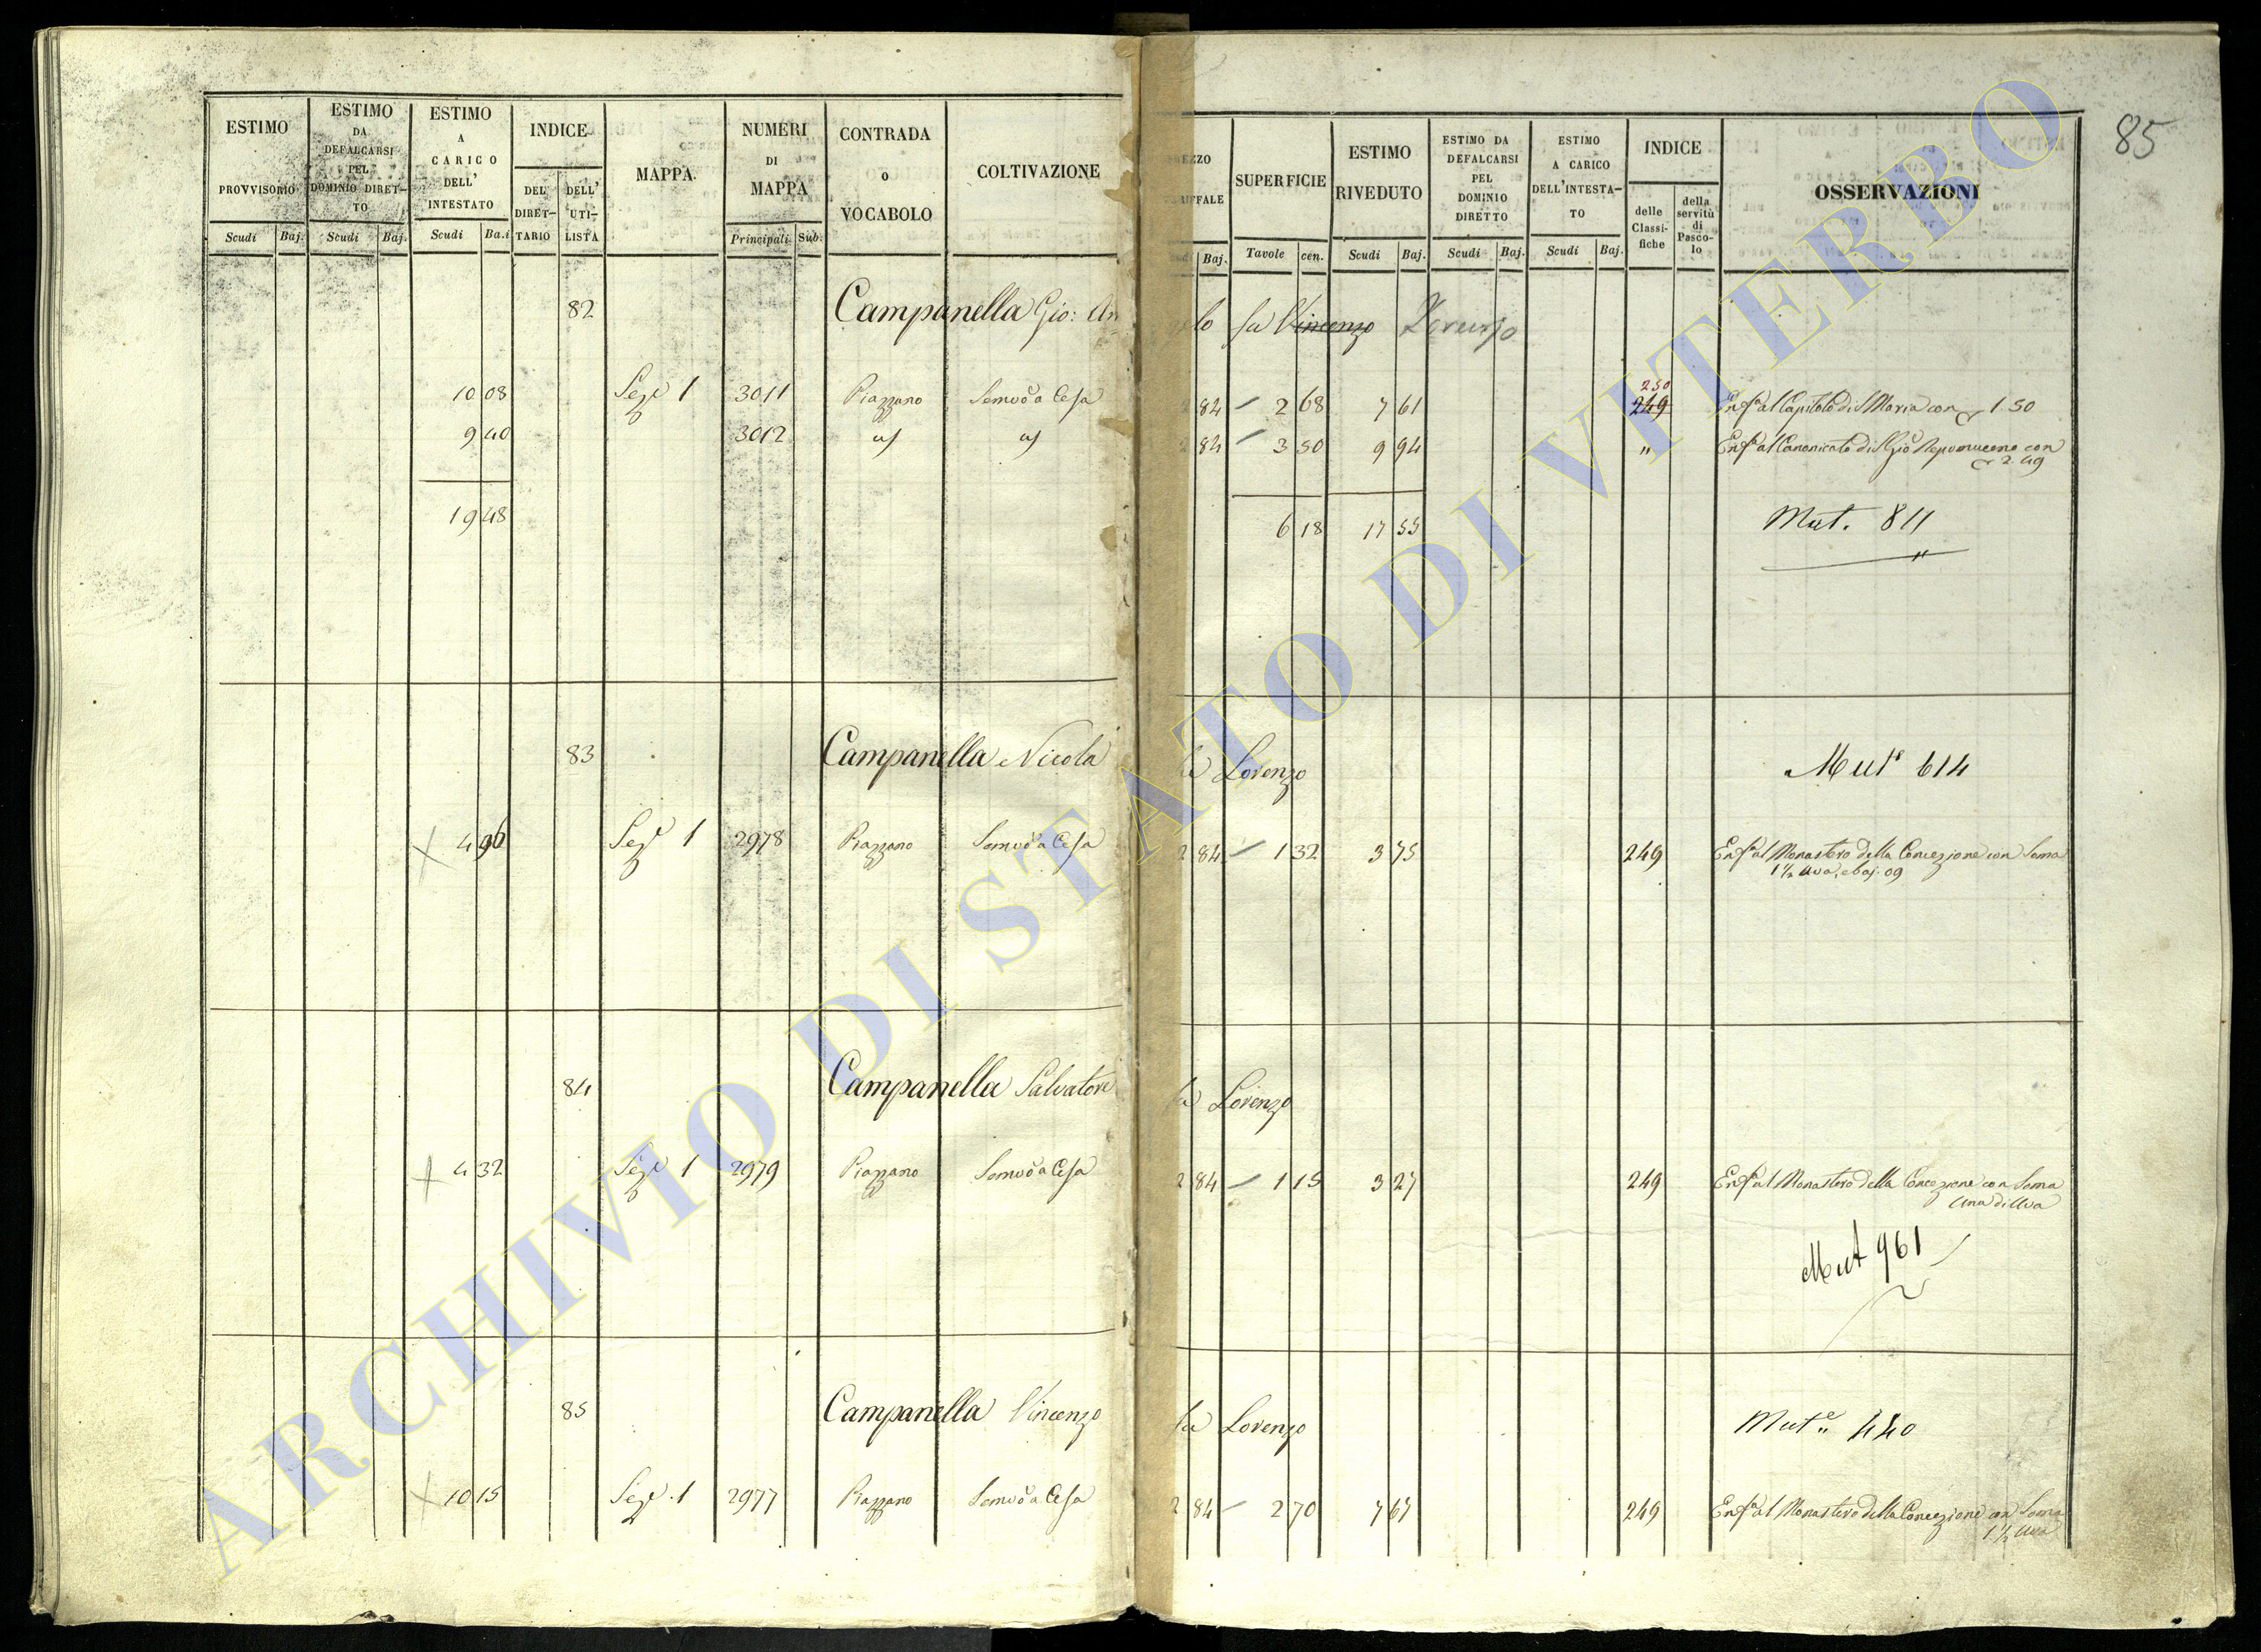 85
ESTIMO PROVVISORIO
ESTIMO DA DEFALCARSI PEL DOMINIO DIRET-TO
ESTIMO A CARICO DELL' INTESTATO
INDICE
DEL DIRET-TARIO
DELL' UTI-LISTA
MAPPA.
NUMERI DI MAPPA
CONTRADA o VOCABOLO
COLTIVAZIONE
Scudi Baj. Scudi Baj. Scudi Ba.i Principali Sub.
SUPERFICIE
ESTIMO RIVEDUTO
ESTIMO DA DEFALCARSI PEL DOMINIO DIRETTO
ESTIMO A CARICO DELL'INTESTA-TO
INDICE
delle Classi-fiche
della servitù di Pasco-lo
OSSERVAZIONI
Baj. Tavole cen. Scudi Baj. Scudi Baj. Scudi Baj.
82 Campanella Gio: An lo fu Vincenzo Lorenzo
250
10 08 Sez.e 1 3011 Piazzano 84 2 68 7 61 249 al Capitolo di S Maria con 1.50
9 40 3012 84 3 50 9 94 " al Canonicato di S Gio Nepomuceno con
2.49
19 48 6 18 17 55 Mut. 811
83 Campanella Nicola fu Lorenzo Mut.e 614
4 96 Sez.e 1 2978 Piazzano 2 84 1 32 3 75 249 al Monastero della Concezione con Soma
1 1/2 Uva, e baj. 09
84 Campanella Salvatore fu Lorenzo
4 32 Sez.e 1 2979 Piazzano 2 84 1 15 3 27 249 al Monastero della Concezione con Soma
Una di Uva
Mut 961
85 Campanella Vincenzo fu Lorenzo Mut.e 440
10 15 Sez.e 1 2977 Piazzano 2 84 2 70 7 67 249 al Monastero della Concezione con Soma
1 1/2 Uva
ARCHIVIO DI STATO DI VITERBO